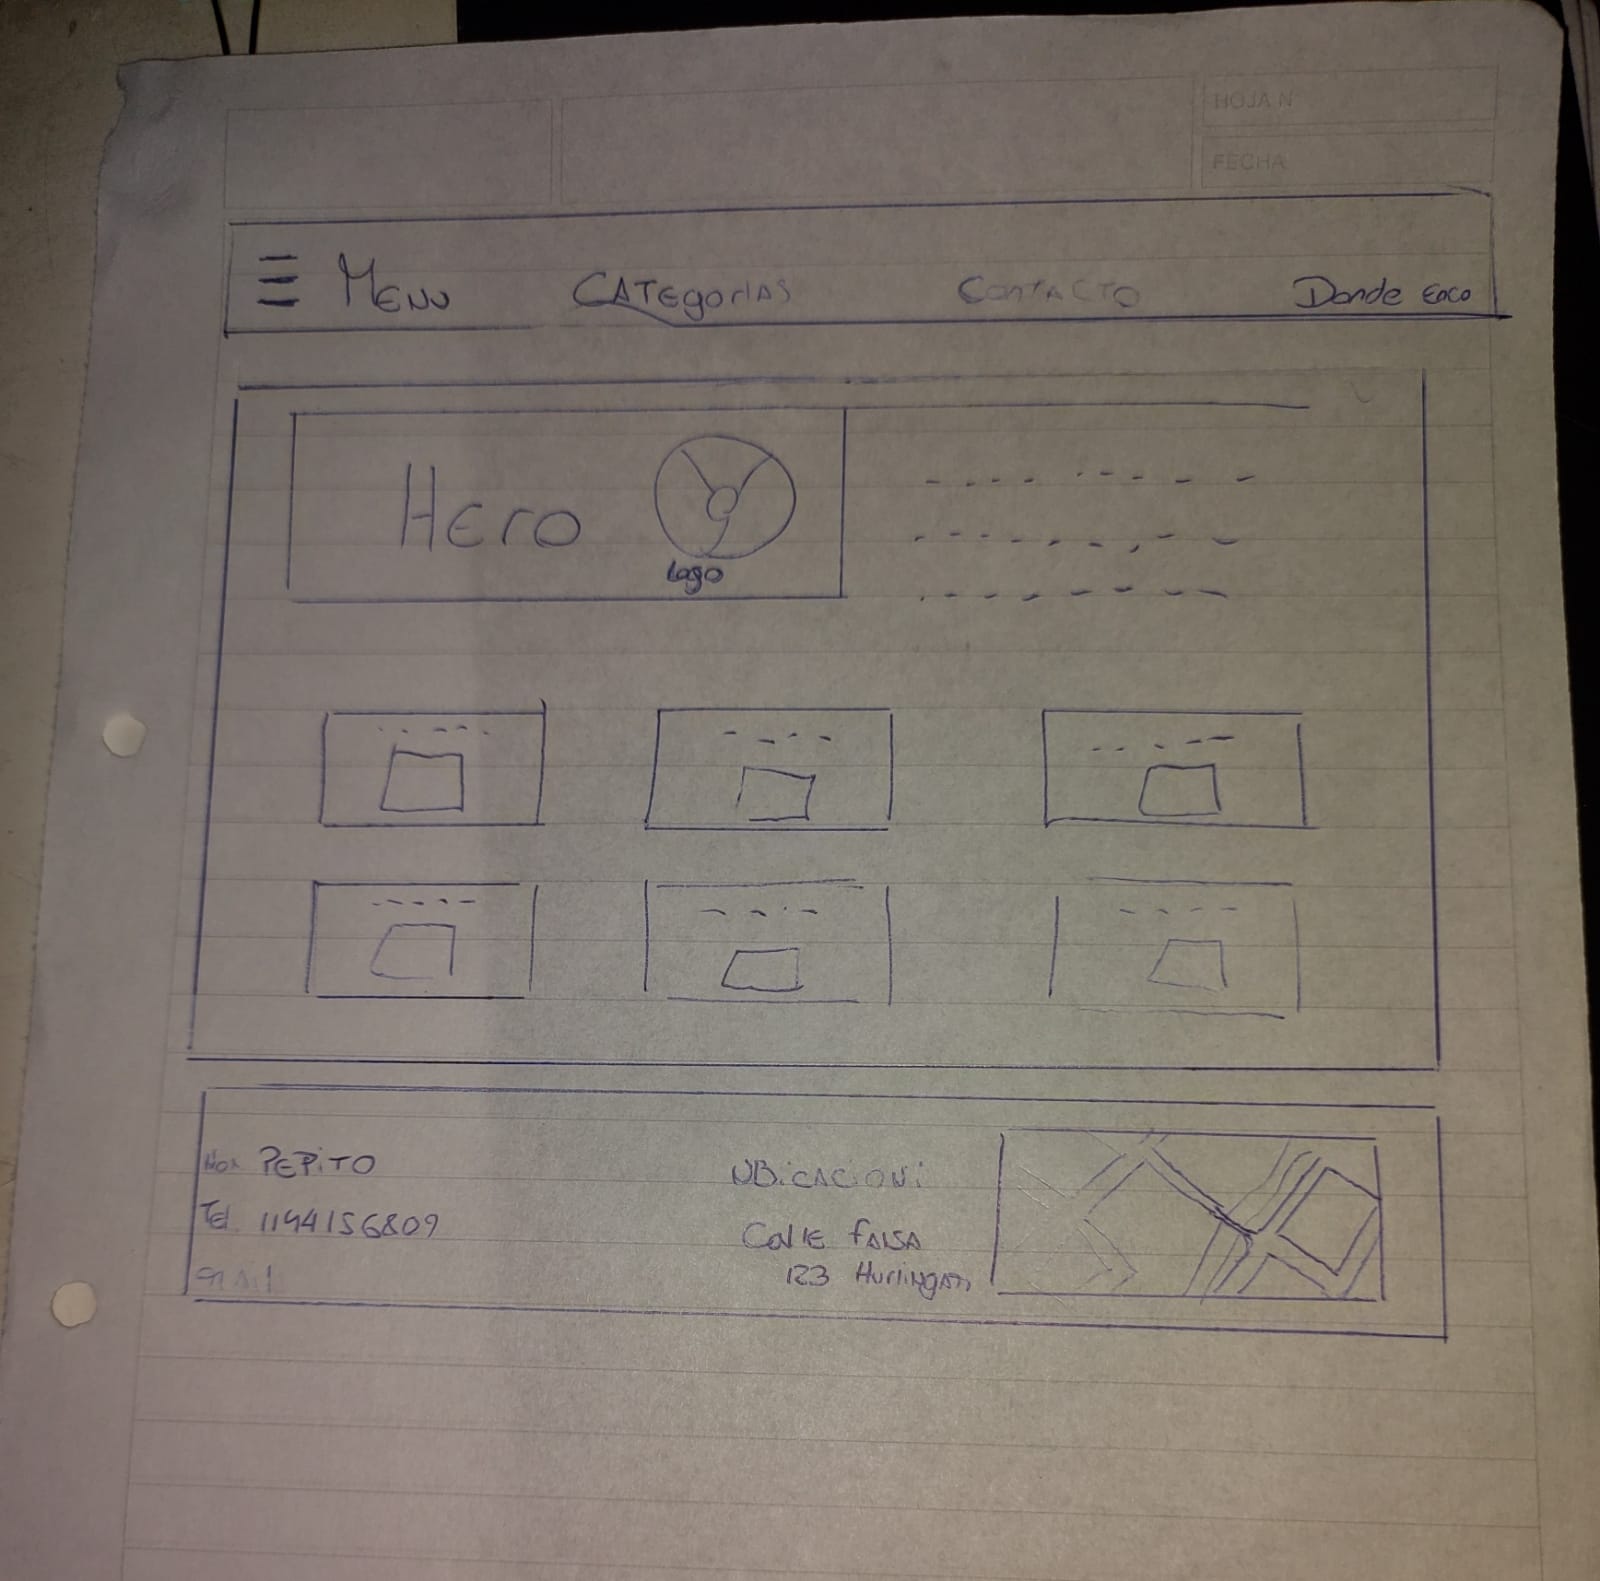 HOJA N
FECHA
MENU CATEgorIAS CONTACTO Donde Enco
HEro
Logo
PEPITO
Tel. 1144156809
UBICACION:
CALLE FALSA
123 Hurlingam